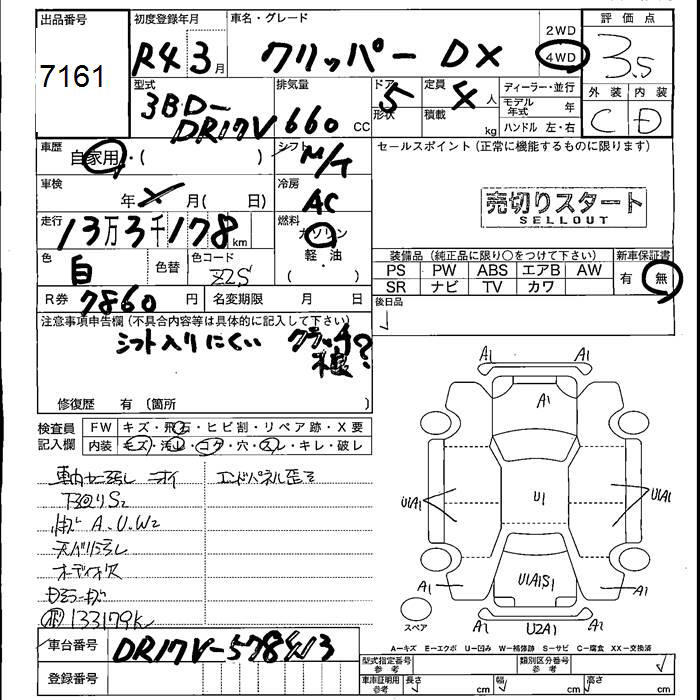 出品番号
7161
初度登録年月
R4 3月
車名・グレード
クリッパー DX
2WD
4WD
評価点
3.5
外装 内装
C D
型式
3BD-
DR17V
排気量
660 CC
ドア
5
形状
定員
4人
積載
kg
ディーラー・並行
モデル年式 年
ハンドル 左・右
車歴
自家用・( )
シフト
M/T
車検
年 月( 日)
冷房
AC
走行
13万3千178km
燃料
ガソリン
軽・油
色
白
色替
色コード
Z2S
R券 7860円
名変期限 月 日
セールスポイント (正常に機能するものに限ります)
売切りスタート
SELLOUT
装備品 (純正品に限り○をつけて下さい)
PS PW ABS エアB AW
SR ナビ TV カワ
新車保証書
有 無
後日品
注意事項申告欄 (不具合内容等は具体的に記入して下さい)
シフト入りにくい クラッチ
?
修復歴 有 (箇所 )
検査員
記入欄
FW キズ・飛石・ヒビ割・リペア跡・X要
内装 キズ・汚れ・コゲ・穴・スレ・キレ・破レ
エンドパネル歪ミ
下回りS2
A.U.W2
133179K
車台番号
DR17V-578413
登録番号
A1 A1
A1
U1A1 U1 U1A1
U1A1S1
A1 A1
U2A1
スペア
A=キズ E=エクボ U=凹み W=補修跡 S=サビ C=腐食 XX=交換済
型式指定番号
参考
類別区分番号
参考
車庫証明用
参考
長さ cm 幅 cm 高さ cm